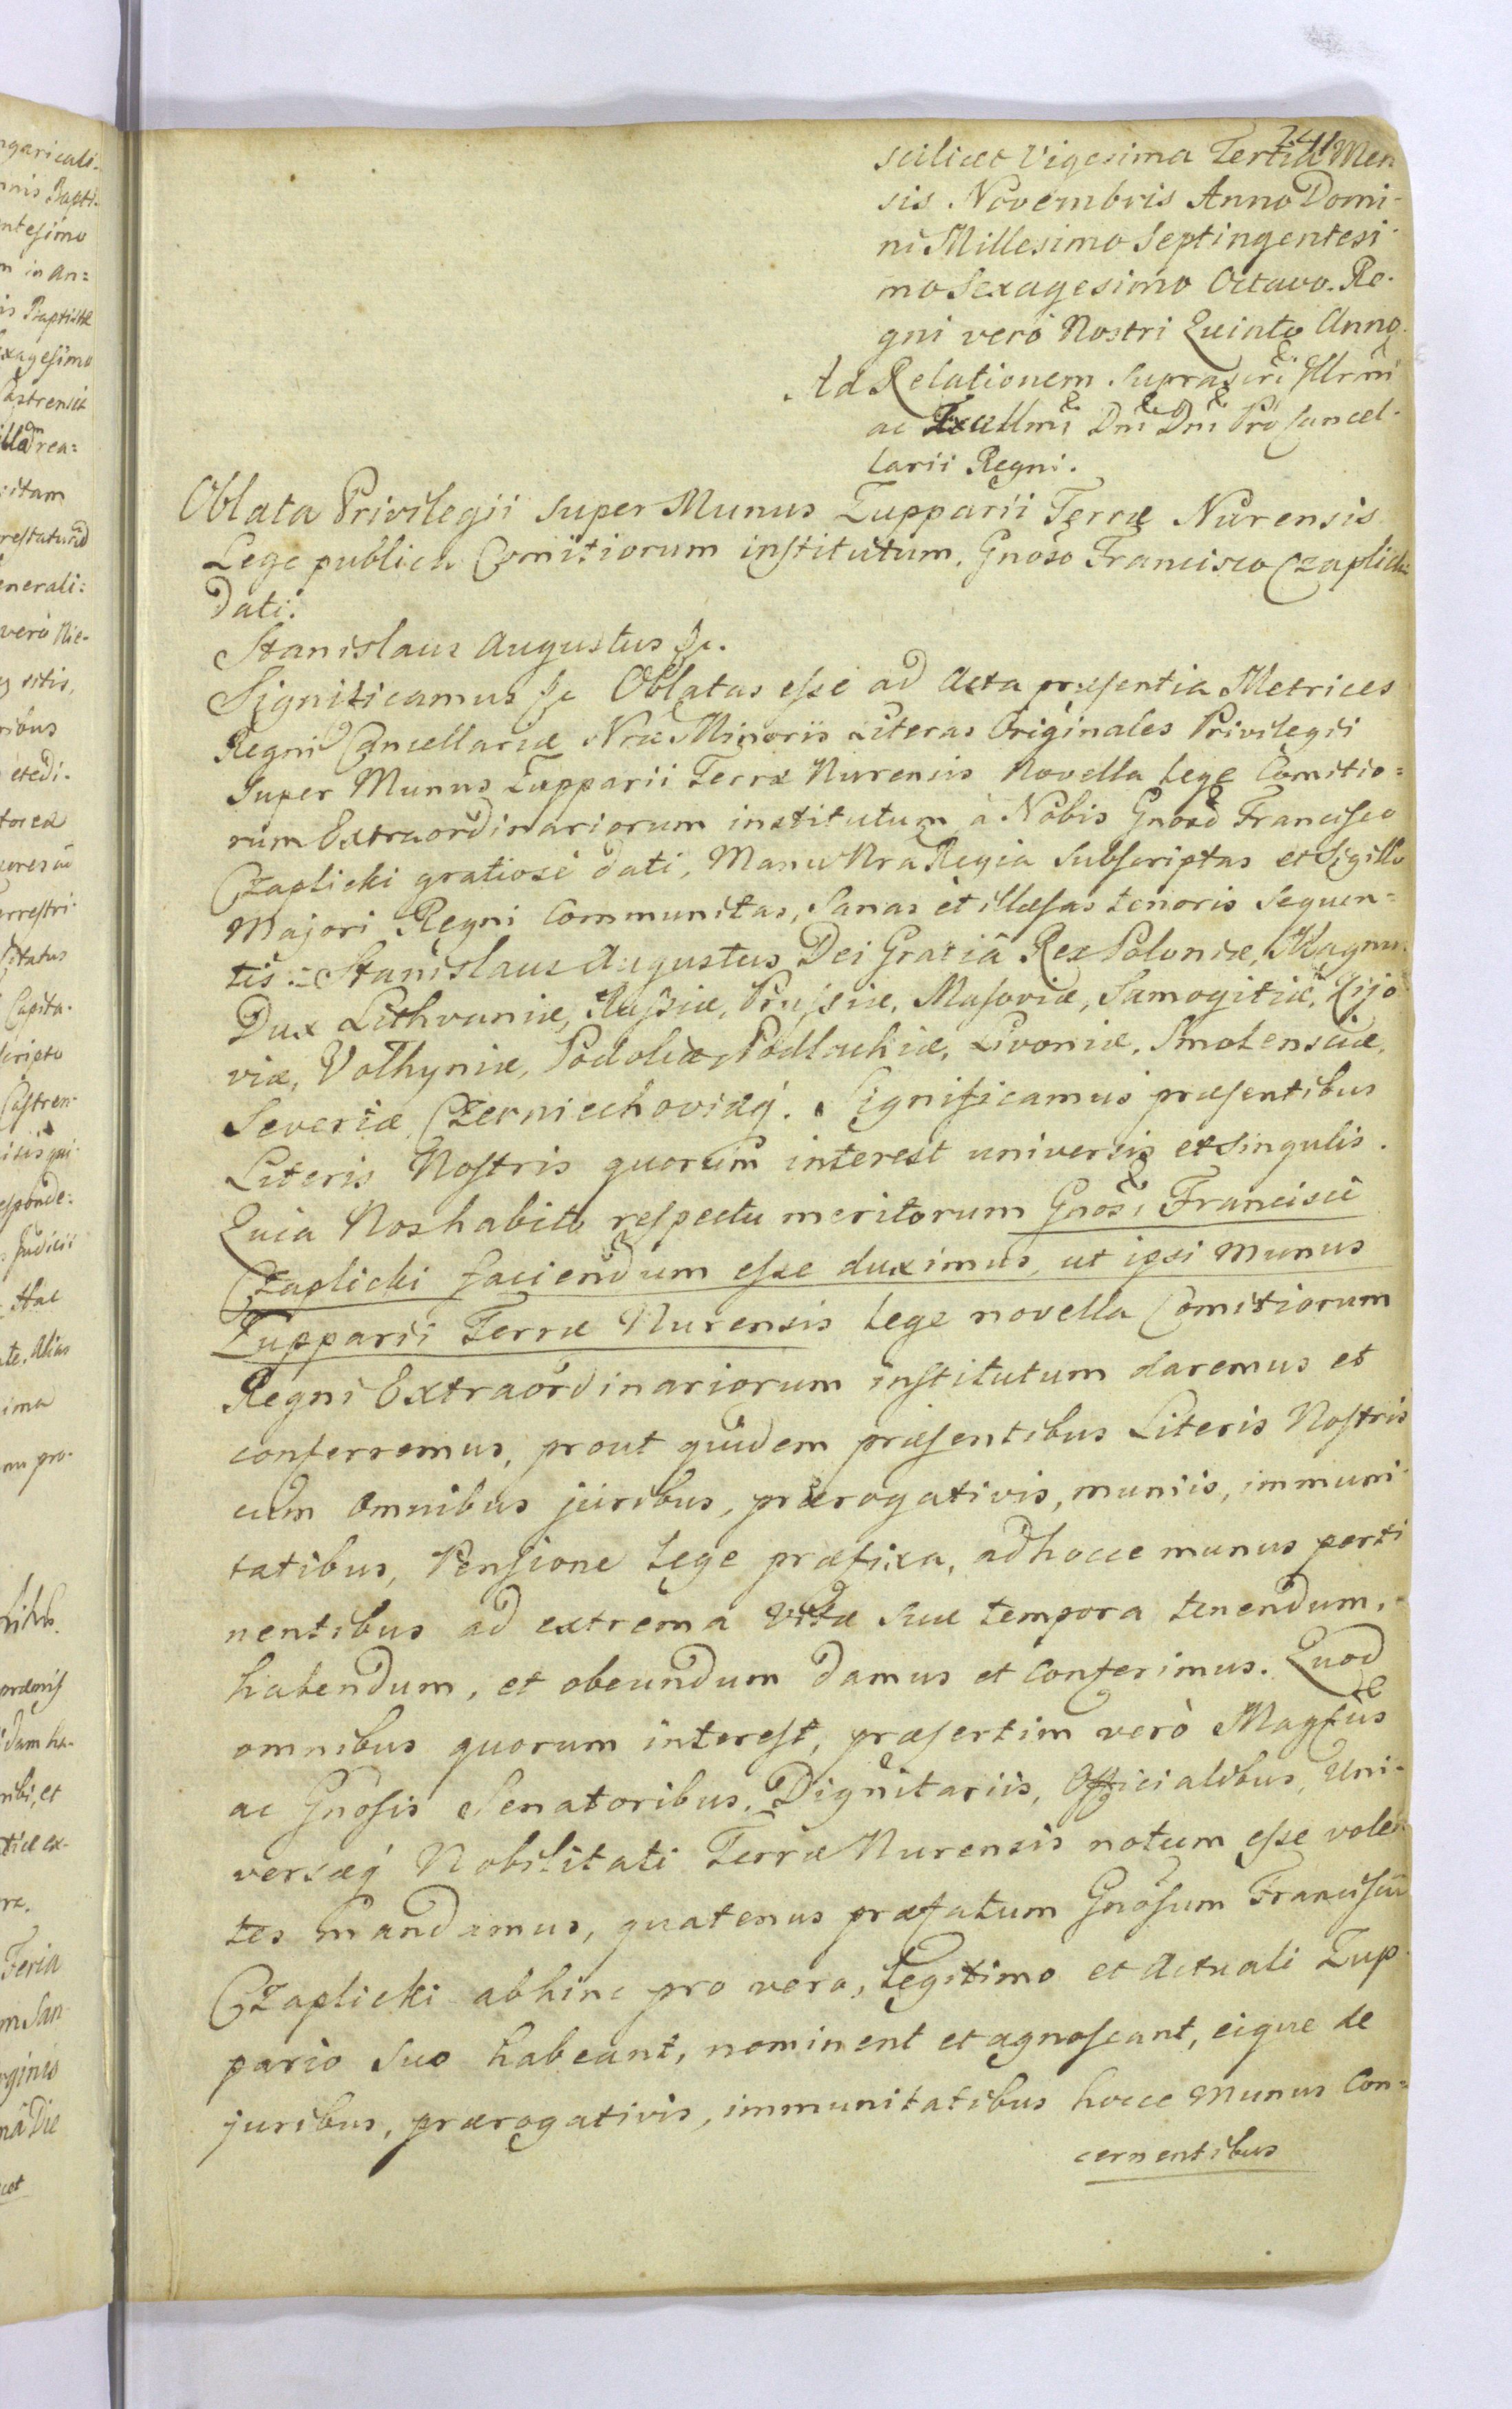 241
scilicet Vigesima Tertia Men
sis Novembris Anno Domi-
ni Millesimo Septingentesi-
mo Sexagesimo Octavo. Re-
gni verò Nostri Quinto Anno.
Ad Relationem suprascri Illrmi
ac Excellmi Dni Dni Pro Cancel-
larii Regni.
Oblata Privilegii super Munus Zupparii Terræ Nurensis
Lege publica Comitiorum institutum, Gnoso Francisco Czaplicki
dati.
Stanislaus Augustus &c.
Significamus &c Oblatas esse ad Acta præsentia Metrices
Regni Cancellariæ Nræ Minoris Literas Originales Privilegii
super Munus Zupparii Terræ Nurensis Novella Lege Comitio=
rum Extraordinariorum institutum à Nobis Gnoso Francisco
Czaplicki gratiosè dati, Manu Nra Regia subscriptas et Sigillo
Majori Regni Communitas, sanas et illæsas tenoris sequen=
tis:= Stanislaus Augustus Dei Gratiâ Rex Poloniæ, Magnus
Dux Lithvaniæ, Russiæ, Prussiæ, Masoviæ, Samogitiæ, Kijo
viæ, Volhyniæ, Podoliæ, Podlachiæ, Livoniæ, Smolensciæ,
Severiæ Czerniechoviæq. Significamus præsentibus
Literis Nostris quorum interest universis et singulis.
Quia Nos habito respectu meritorum Gnosi Francisci
Czaplicki faciendum esse duximus, ut ipsi munus
Zupparii Terræ Nurensis Lege novella Comitiorum
Regni Extraordinariorum institutum daremus et
conferremus, prout quidem præsentibus Literis Nostris
cum omnibus juribus, prærogativis, muniis, immuni-
tatibus, Pensione Lege præfixa, ad hocce munus perti
nentibus ad extrema vitæ suæ tempora tenendum,
habendum, et obeundum damus et conferimus. Quod
omnibus quorum interest, præsertim verò Magcis
ac Gnosis Senatoribus, Dignitariis, Officialibus, Uni-
versæq Nobilitati Terræ Nurensis notum esse volen
tes mandamus, quatenus præfatum Gnosum Franciscum
Czaplicki abhinc pro vero, Legitimo et Actuali Zup-
pario suo habeant, nominent et agnoscant, eique de
juribus, prærogativis, immunitatibus hocce munus Con=
cernentibus